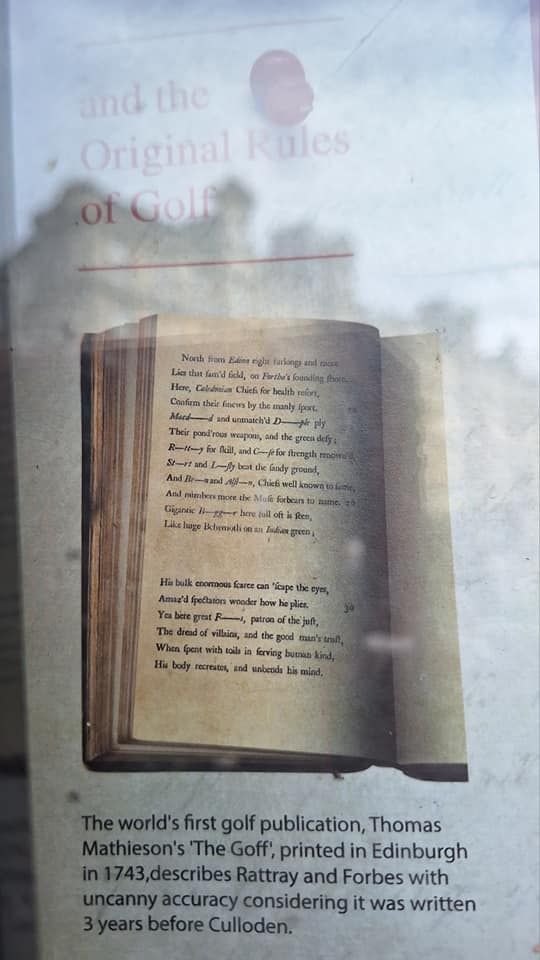 and the
Original Rules
of Golf
North from Edina eight furlongs and more
Lies that fam'd field, on Fortha's sounding shore.
Here, Caledonian Chiefs for health resort,
Confirm their sinews by the manly sport.
Macd——d and unmatch'd D——ple ply
Their pond'rous weapons, and the green defy;
R—tt—y for skill, and C—se for strength renown'd,
St—rt and L—sly beat the sandy ground,
And Br—n and Alst—n, Chiefs well known to fame,
And numbers more the Muse forbears to name.
Gigantic B—gg—r here full oft is seen,
Like huge Behemoth on an Indian green;
His bulk enormous scarce can 'scape the eyes,
Amaz'd spectators wonder how he plies.
30
Yea here great F——s, patron of the just,
The dread of villains, and the good man's trust,
When spent with toils in serving human kind,
His body recreates, and unbends his mind.
The world's first golf publication, Thomas
Mathieson's 'The Goff', printed in Edinburgh
in 1743,describes Rattray and Forbes with
uncanny accuracy considering it was written
3 years before Culloden.